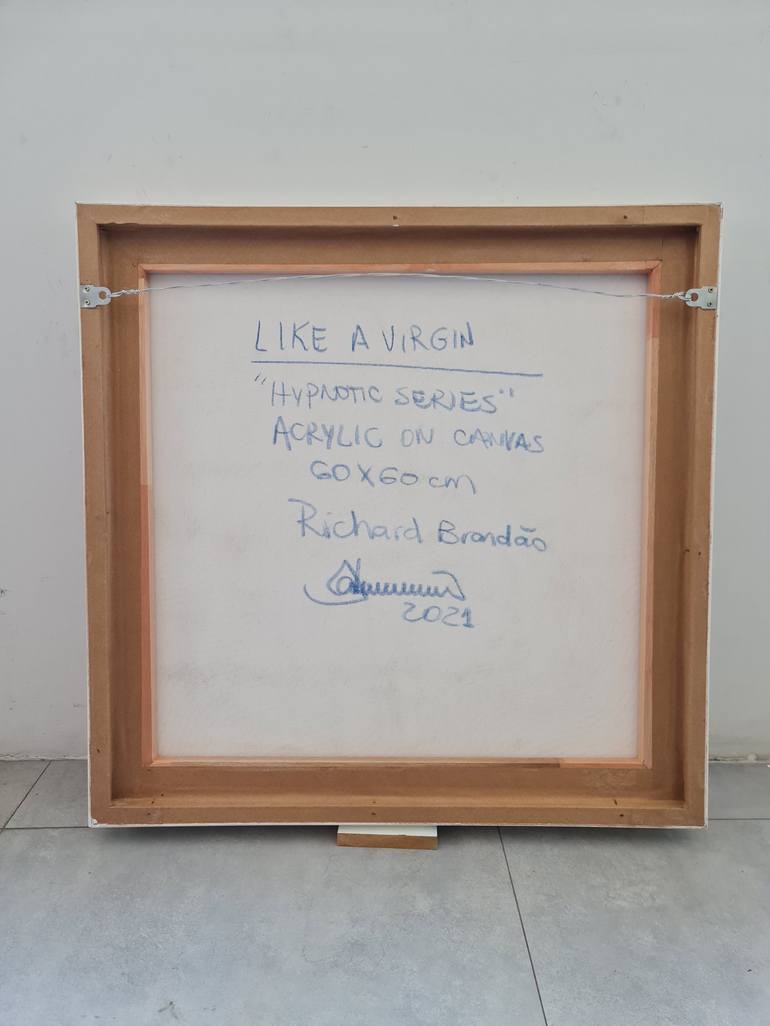 LIKE A VIRGIN
"HYPNOTIC SERIES"
ACRYLIC ON CANVAS
60X60cm
Richard Brandão
2021